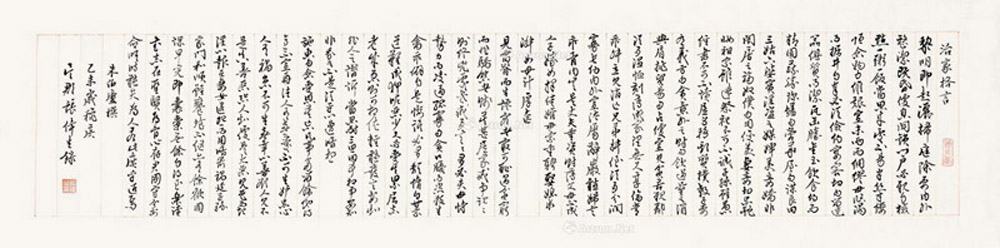 治家格言
黎明即起灑掃庭除要內外
整潔既昏便息關鎖門戶必親自檢
點一粥一飯當思來處不易半絲半縷
恆念物力維艱宜未雨而綢繆毋臨渴
而掘井自奉必須儉約宴客切勿留連
器具質而潔瓦缶勝金玉飲食約而
精園蔬愈珍饈勿營華屋勿謀良田
三姑六婆實淫盜之媒婢美妾嬌非
閨房之福奴僕勿用俊美妻妾切忌艷
妝祖宗雖遠祭祀不可不誠子孫雖愚
經書不可不讀居身務期質樸教子要
有義方勿貪意外之財勿飲過量之酒
與肩挑貿易勿佔便宜見貧苦親鄰
須多溫恤刻薄成家理無久享倫常
乖舛立見消亡兄弟叔侄須多分潤
寡長幼內外宜法屬辭嚴聽婦言
乖骨肉豈是丈夫重資財薄父母不成
人子嫁女擇佳婿毋索重聘娶媳求
淑女毋計厚奩
見富貴而生讒容者最可恥遇貧窮
而作驕態者賤莫甚居家戒爭訟訟
則終凶處世戒多言言多必失毋恃
勢力而凌逼孤寡勿貪口腹而恣殺生
禽乖僻自是悔誤必多頹惰自甘家
道難成狎昵惡少久必受其累屈志
老成急則可相依輕聽發言安知非
人之譖訴當忍耐三思因事相爭安知
非我之不是須平心暗想
施惠勿念受恩莫忘凡事當留餘地得
意不宜再往人有喜慶不可生妒忌心
人有禍患不可生喜幸心善欲人見不
是真善惡恐人知便是大惡見色而起
淫心報在妻女匿怨而用暗箭禍延子孫
家門和順雖饔飧不繼亦有餘歡國
課早完即囊橐無餘自得至樂讀
書志在聖賢為官心存君國守分安
命順時聽天為人若此庶乎近焉
朱柏廬撰